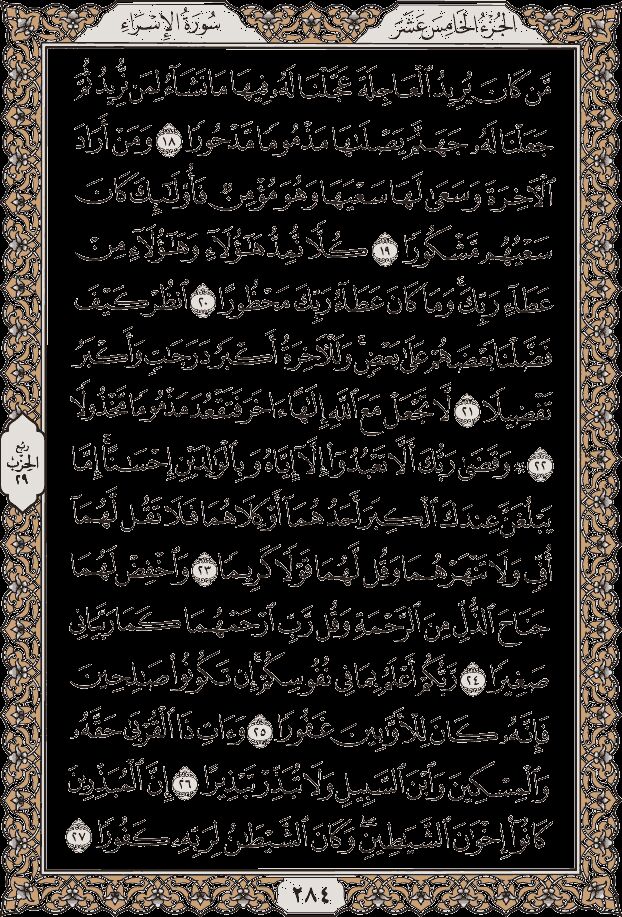 الجزء الخامس عشر
سورة الإسراء
مَّن كَانَ يُرِيدُ ٱلۡعَاجِلَةَ عَجَّلۡنَا لَهُۥ فِيهَا مَا نَشَآءُ لِمَن نُّرِيدُ ثُمَّ
جَعَلۡنَا لَهُۥ جَهَنَّمَ يَصۡلَىٰهَا مَذۡمُومٗا مَّدۡحُورٗا ١٨ وَمَنۡ أَرَادَ
ٱلۡأٓخِرَةَ وَسَعَىٰ لَهَا سَعۡيَهَا وَهُوَ مُؤۡمِنٞ فَأُوْلَٰٓئِكَ كَانَ
سَعۡيُهُم مَّشۡكُورٗا ١٩ كُلّٗا نُّمِدُّ هَٰٓؤُلَآءِ وَهَٰٓؤُلَآءِ مِنۡ
عَطَآءِ رَبِّكَۚ وَمَا كَانَ عَطَآءُ رَبِّكَ مَحۡظُورًا ٢٠ ٱنظُرۡ كَيۡفَ
فَضَّلۡنَا بَعۡضَهُمۡ عَلَىٰ بَعۡضٖۚ وَلَلۡأٓخِرَةُ أَكۡبَرُ دَرَجَٰتٖ وَأَكۡبَرُ
تَفۡضِيلٗا ٢١ لَّا تَجۡعَلۡ مَعَ ٱللَّهِ إِلَٰهًا ءَاخَرَ فَتَقۡعُدَ مَذۡمُومٗا مَّخۡذُولٗا
٢٢ ۞ وَقَضَىٰ رَبُّكَ أَلَّا تَعۡبُدُوٓاْ إِلَّآ إِيَّاهُ وَبِٱلۡوَٰلِدَيۡنِ إِحۡسَٰنًاۚ إِمَّا
يَبۡلُغَنَّ عِندَكَ ٱلۡكِبَرَ أَحَدُهُمَآ أَوۡ كِلَاهُمَا فَلَا تَقُل لَّهُمَآ
أُفّٖ وَلَا تَنۡهَرۡهُمَا وَقُل لَّهُمَا قَوۡلٗا كَرِيمٗا ٢٣ وَٱخۡفِضۡ لَهُمَا
جَنَاحَ ٱلذُّلِّ مِنَ ٱلرَّحۡمَةِ وَقُل رَّبِّ ٱرۡحَمۡهُمَا كَمَا رَبَّيَانِي
صَغِيرٗا ٢٤ رَّبُّكُمۡ أَعۡلَمُ بِمَا فِي نُفُوسِكُمۡۚ إِن تَكُونُواْ صَٰلِحِينَ
فَإِنَّهُۥ كَانَ لِلۡأَوَّٰبِينَ غَفُورٗا ٢٥ وَءَاتِ ذَا ٱلۡقُرۡبَىٰ حَقَّهُۥ
وَٱلۡمِسۡكِينَ وَٱبۡنَ ٱلسَّبِيلِ وَلَا تُبَذِّرۡ تَبۡذِيرًا ٢٦ إِنَّ ٱلۡمُبَذِّرِينَ
كَانُوٓاْ إِخۡوَٰنَ ٱلشَّيَٰطِينِۖ وَكَانَ ٱلشَّيۡطَٰنُ لِرَبِّهِۦ كَفُورٗا ٢٧
ربع
الحزب
٢٩
٢٨٤